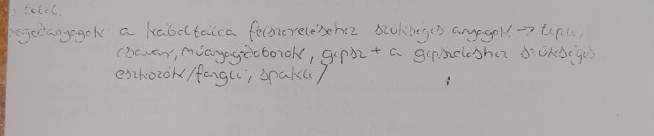 tétel.
segédanyagok a kábeltálca felszereléséhez szükséges anyagok → tipli,
csavar, műanyagdobozok, gipsz + a gipszeléshez szükséges
eszközök /fangli, spakli/